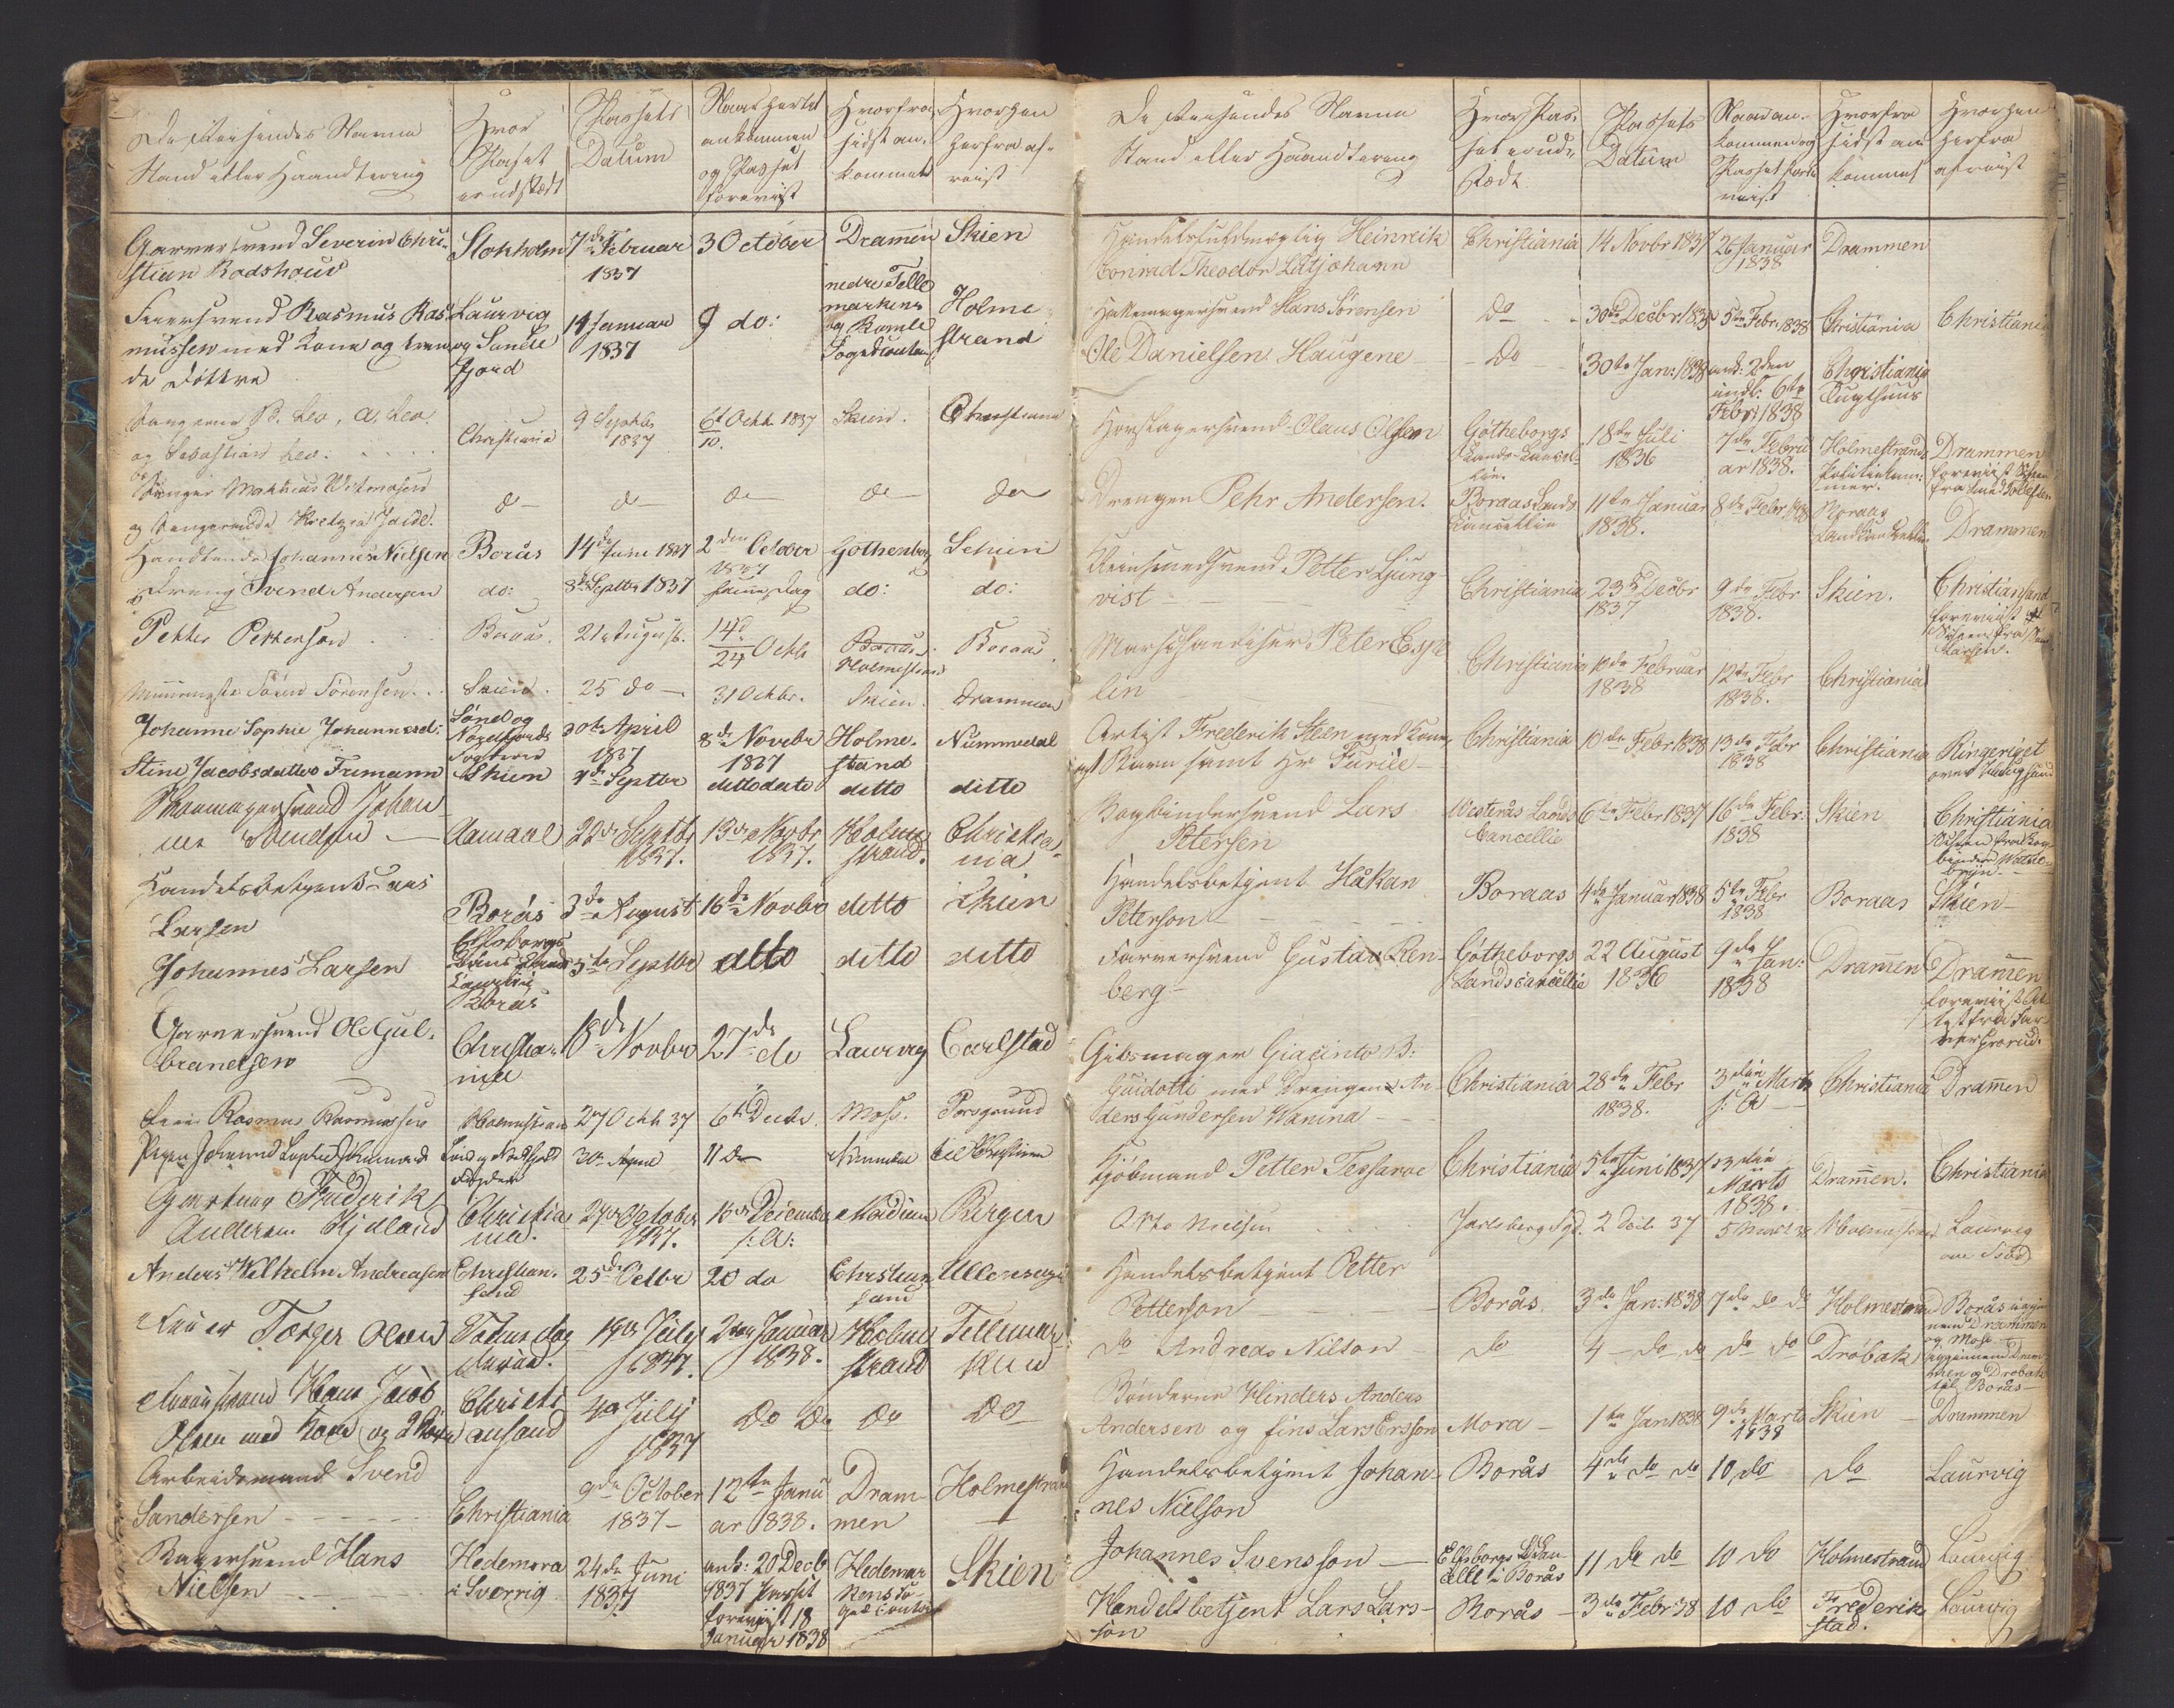 De Reisendes Navne
Stand eller Haandtering
Hvor
Passet
er udstædt
Passets
Datum
Naar hertil
ankommen
og Passet
forevist
Hvorfra
sidst an-
kommet
Hvorhen
herfra af-
reist
Garversvend Severin Chri-
stian Rodshoud
Stokholm
7de Februar
1837
3 October
Dramen
Skien
Feiersvend Rasmus Ras-
mussen med Kone og tven-
de Døttre
Laurvig
og Sande
fjord
14 Januar
1837
9 do:
nedre Telle
markens
og Bamle
Fogedcontoir
Holme
strand
Sangerne B. Leo, A. Leo
og Sebastian Leo.
Christiania
9 Septbr
1837
6t Octb. 1837
10.
Skien.
Christiania
Sanger Mathias
og Sangerinde
do
do
do
do
do
Handlende Johannes Nielsen
Borås
14de Juni 1837
2den October
1837
Gothenborg
Schien
Dreng Svend Andersen
do:
3de Septbr 1837
samme Dag
do:
do:
Petter Petterson
Boraas.
21 August.
14d
24 Octb
Boraas
Holmestrand
Boraas
Søren Sørensen
Skien.
25 do
31 Octbr.
Skien.
Drammen
Johanne Sophie Johannesd:
Sønd og
Nordfjords
Fogderi
30te April
1837
8de Novebr
1837
Holme-
strand
Nummedal
Stine Jacobsdatter Fremann
Skien
4de Septbr
ditto dato
ditto
ditto
Skoemagersvend Johan
nes Svendsen
Aamaal
22de Septbr
1837.
13de Novbr
1837.
Holme
strand.
Christia-
nia
Handelsbetjent Lars
Larsen
Borås
3de August
16de Novbr
ditto
Skien
Johannes Larsen
Elfsborgs
Läns Lands
Cancelli
Borås
5te Septbr
ditto
ditto
ditto
Garversvend Ole Gul-
brandsen
Christia-
nia
18de Novbr
27de do
Laurvig
Carlstad
Feier Rasmus Rasmussen
Holmestrand
27 Octb 37
6te Decbr.
Moss.
Porsgrund
30te April
11 do
til Christiania
Gjørtner Frederik
Andersen Kjelland
Christia-
nia.
27de October
1837.
18de December
s: A:
Bergen
Anders Wilhelm Andreasen
Christian-
sand
25de Octbr
20 do
Christian-
sand
Feier Torger Olsen
19de July
1837.
2den Januar
1838.
Holme
strand
Tellemar-
ken
Murersvend Hans Jacob
Olsen med Kone og 2 Børn
Christi
ansand
4de July
1837
do do
do
do
Arbeidsmand Svend
Sandersen
Christiania
9de October
1837
12te Janu
ar 1838.
Dram-
men
Holmestrand
Bagersvend Hans
Nielsen
Hedemora
i Sverrig
24de Juni
1837
ank: 20 Decb
1837 Passet
forevist 18
Januar 1838
Hedemar
kens Fo-
ged Contoir
Skien
De Reisendes Navne
Stand eller Haandtering
Hvor Pas-
set er ud-
stædt
Passets
Datum
Naar an-
kommen og
Passet fore
viist
Hvorfra
sidst an
kommet
Hvorhen
herfra
afreist
Handelsfuldmægtig Heinrich
Conrad Theodor Lütjohann
Christiania
14 Novbr 1837
26 Januar
1838
Drammen
Hattemagersvend Hans Sørensen
do
30te Decbr 1837
5te Febr 1838
Christiania
Christiania
Ole Danielsen Haugene
do
30te Jan: 1838
ank: 2den
indl: 6te
Febr 1838
Christiania
Tugthuus
Olaus Olsen
Gøtheborgs
Lands-Cancel-
lie.
18de Juli
1836
7de Febru
ar 1838.
Holmestrands
Politiekam-
mer.
Drammen
Drengen Pehr Andersen.
Boraas Lands
Cancellie
11te Januar
1838.
8de Febr 1838
Boraas
Landcancellie
Drammen
Kleinsmedsvend Petter Ljung-
vist
Christiania
23de Decbr
1837
9de Febr
1838.
Skien.
Christiansand
Larsen.
Peter Espe
lin
Christiania
10de Februar
1838
12te Febr
1838.
Christiania
Artist Frederik Steen med Kone
og Børn samt Hr Furile
Christiania
10de Febr 1838
13de Febr
1838
Christiania
Ringeriget
over
Bogbindersvend Lars
Petersen
Westerås Lands
Cancellie
6te Febr 1837
16de Febr:
1838
Skien
Christiania
Handelsbetjent Håkan
Peterson
Boraas
4de Januar 1838
5te Febr
1838
Boraas
Skien
Farversvend Gustav Ren-
berg
Gøtheborgs
Landscancellie
22 August
1836
9de Jan:
1838
Dramen
Dramen
foreviist At-
test fra Far-
ver Grorud.
Gibsmager Giacinto B:
Guidotti med Drengen An-
ders Gundersen Wanina
Christiania
28de Febr
1838.
3die Marts
s: A
Christiania
Dramen
Kjøbmand Petter Tessarve
Christiania
5te Juni 1837
3die
Marts
1838.
Dramen.
Christiania
Otto Nielsen
Jarlsberg Fgd.
37
5 Marts 38
Holmestrand
Laurvig
Handelsbetjent Petter
Petterson
Borås.
3de Jan: 1838
7de do do
Holmestrand
Borås igjen
nem Drammen
og Moss
do Andreas Nilson
do
4 do do
do do
Drøbak
igjennem Dram
men og Drøbak
til Borås
Bønderne Klinders Anders
Andersen og fins Lars Ersson
Mora
1te Jan 1838
9de Marts
1838
Skien
Drammen
Handelsbetjent Johan-
nes Nielson
Borås
4de do do
10 do
do
Laurvig
Johannes Svensson
Elfsborgs L: Can
celli i Borås
11 do do
10 do
Holmestrand
Laurvig
Handelsbetjent Lars Lars-
son
Borås
3de Febr 38
10 do
Frederik-
stad.
Laurvig